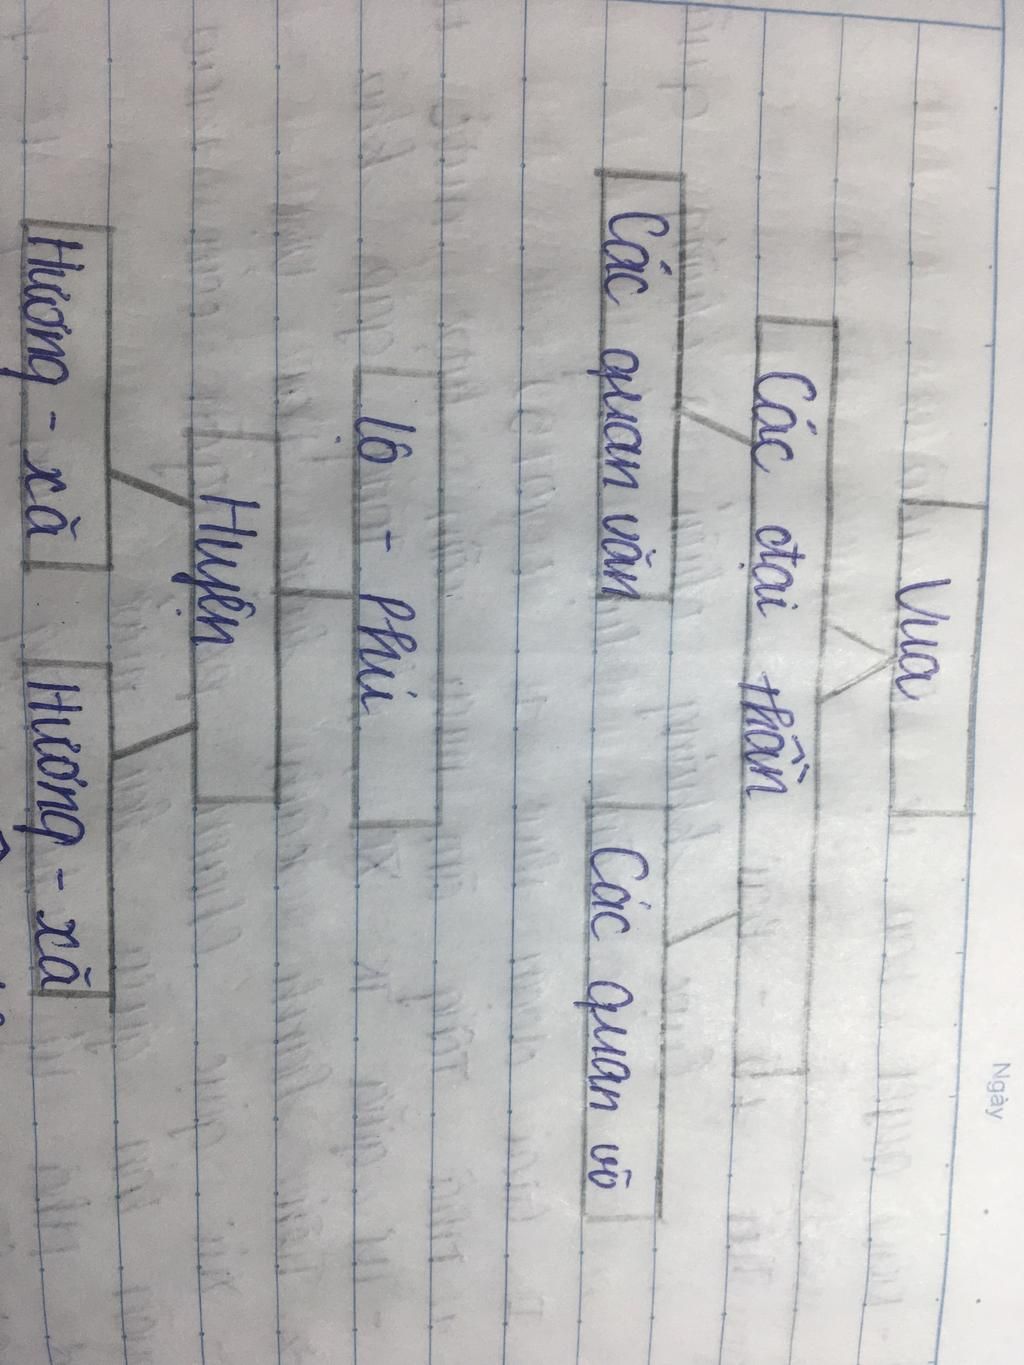 Ngày
Vua
Các đại thần
Các quan văn Các quan võ
lộ - Phủ
Huyện
Hương - xã Hương - xã